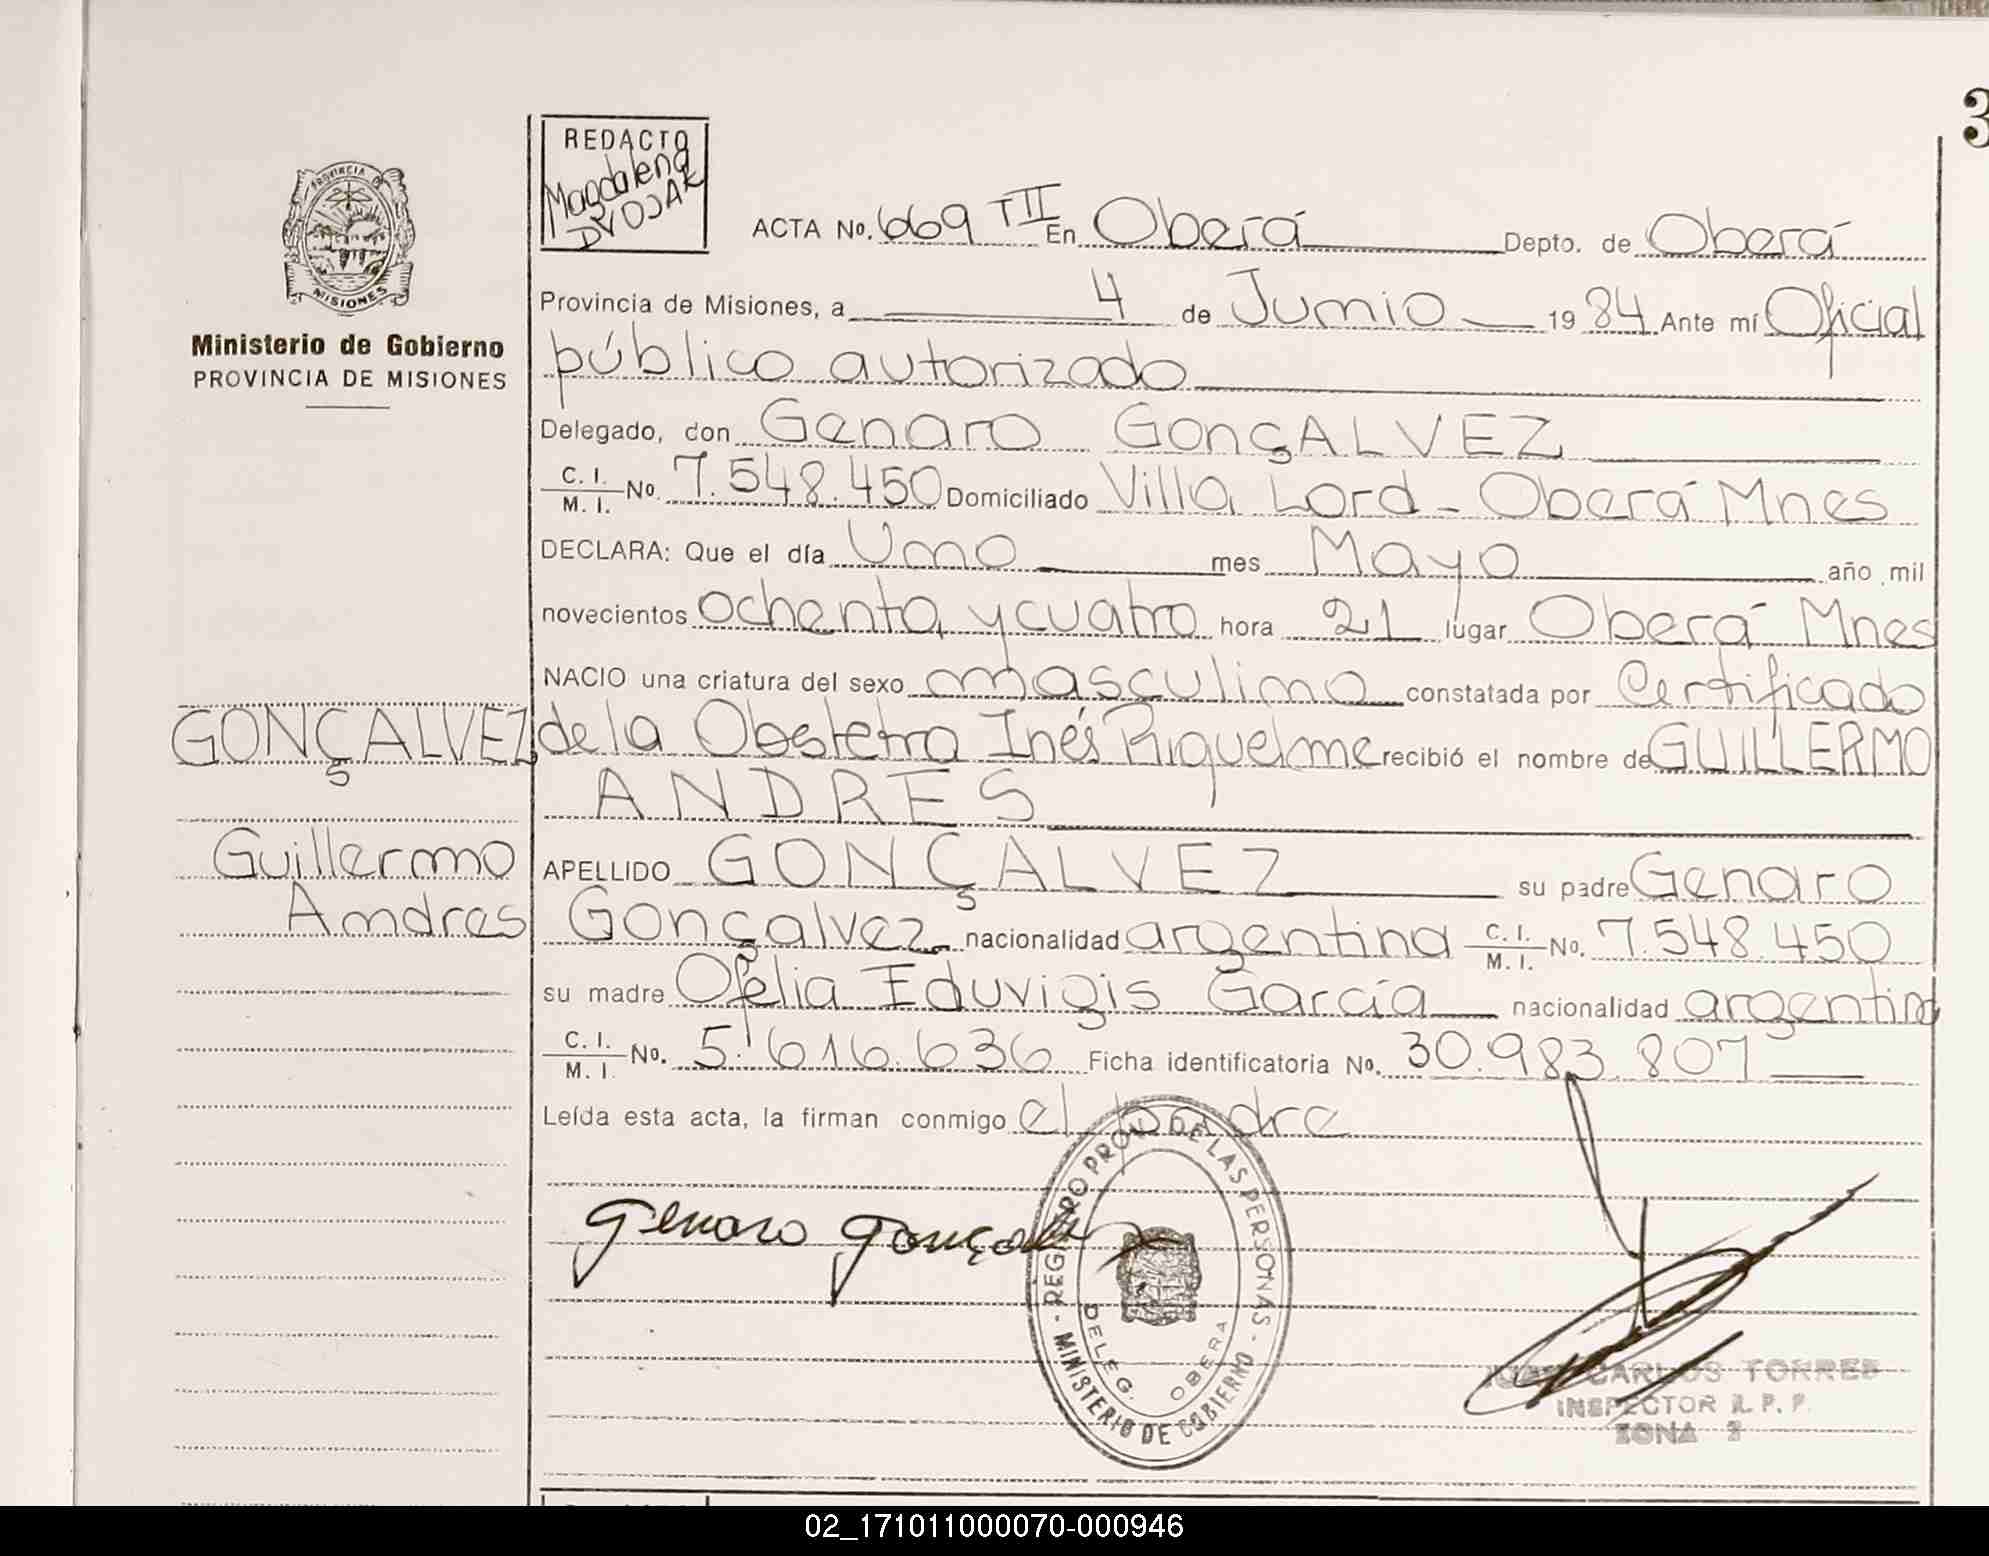 3
REDACTO
Magdalena
DVOJAK
PROVINCIA DE
MISIONES
Ministerio de Gobierno
PROVINCIA DE MISIONES
ACTA No. 669 TII En Oberá Depto. de Oberá
Provincia de Misiones, a 4 de Junio 1984 Ante mí Oficial
público autorizado
Delegado, don Genaro GONÇALVEZ
C. I. / M. I. No. 7.548.450 Domiciliado Villa Lord - Oberá Mnes
DECLARA: Que el día Uno mes Mayo año mil
novecientos ochenta y cuatro hora 21 lugar Oberá Mnes
NACIO una criatura del sexo masculino constatada por Certificado
GONÇALVEZ de la Obstetra Inés Riquelme recibió el nombre de GUILLERMO
ANDRES
Guillermo APELLIDO GONÇALVEZ su padre Genaro
Andres Gonçalvez nacionalidad argentina C. I. / M. I. No. 7.548.450
su madre Ofelia Eduvigis García nacionalidad argentina
C. I. / M. I. No. 5.616.636 Ficha identificatoria No. 30.983.807
Leída esta acta, la firman conmigo el padre
Genaro Gonçalvez
REGISTRO PROV. DE LAS PERSONAS - MINISTERIO DE GOBIERNO -
DELEG. OBERA
CARLOS TORRES
INSPECTOR R. P. P.
ZONA
02_171011000070-000946